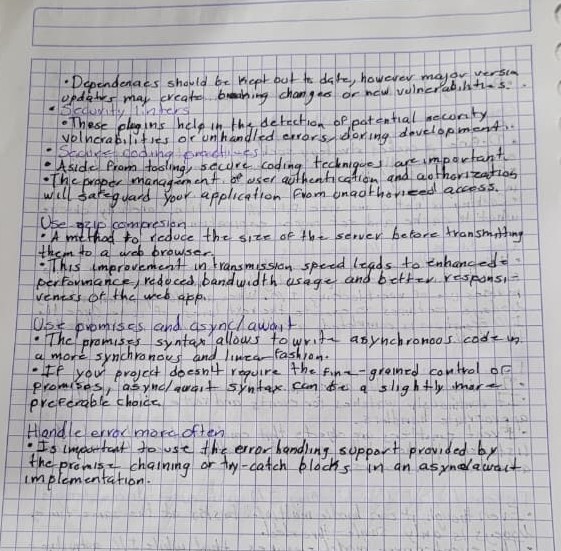 • Dependenaes should be kept out to date, however major versin
updates may create breaking changes or new vulnerabilities.
• Security linters
• These plugins help in the detection of potential security
vulnerabilities or unhandled errors, doring development.
• Secure coding practices
• Aside from tooling, secure coding techniques are important.
• The proper management of user authentication and authorization
will safeguard your application from unauthorized access.
Use gzip compresion
• A method to reduce the size of the server before transmitting
them to a web browser.
• This improvement in transmission speed leads to enhanced
performance, reduced bandwidth usage and better responsi-
veness of the web app.
Use promises and async/await
• The promises syntax allows to write asynchronoos code in
a more synchronous and linear fashion.
• If your project doesn't require the fine-grained control of
promises, async/await syntax can be a slightly more
preferable choice
Handle error more often
• Is important to use the error handling support provided by
the promise chaining or try-catch blocks in an async/await
implementation.